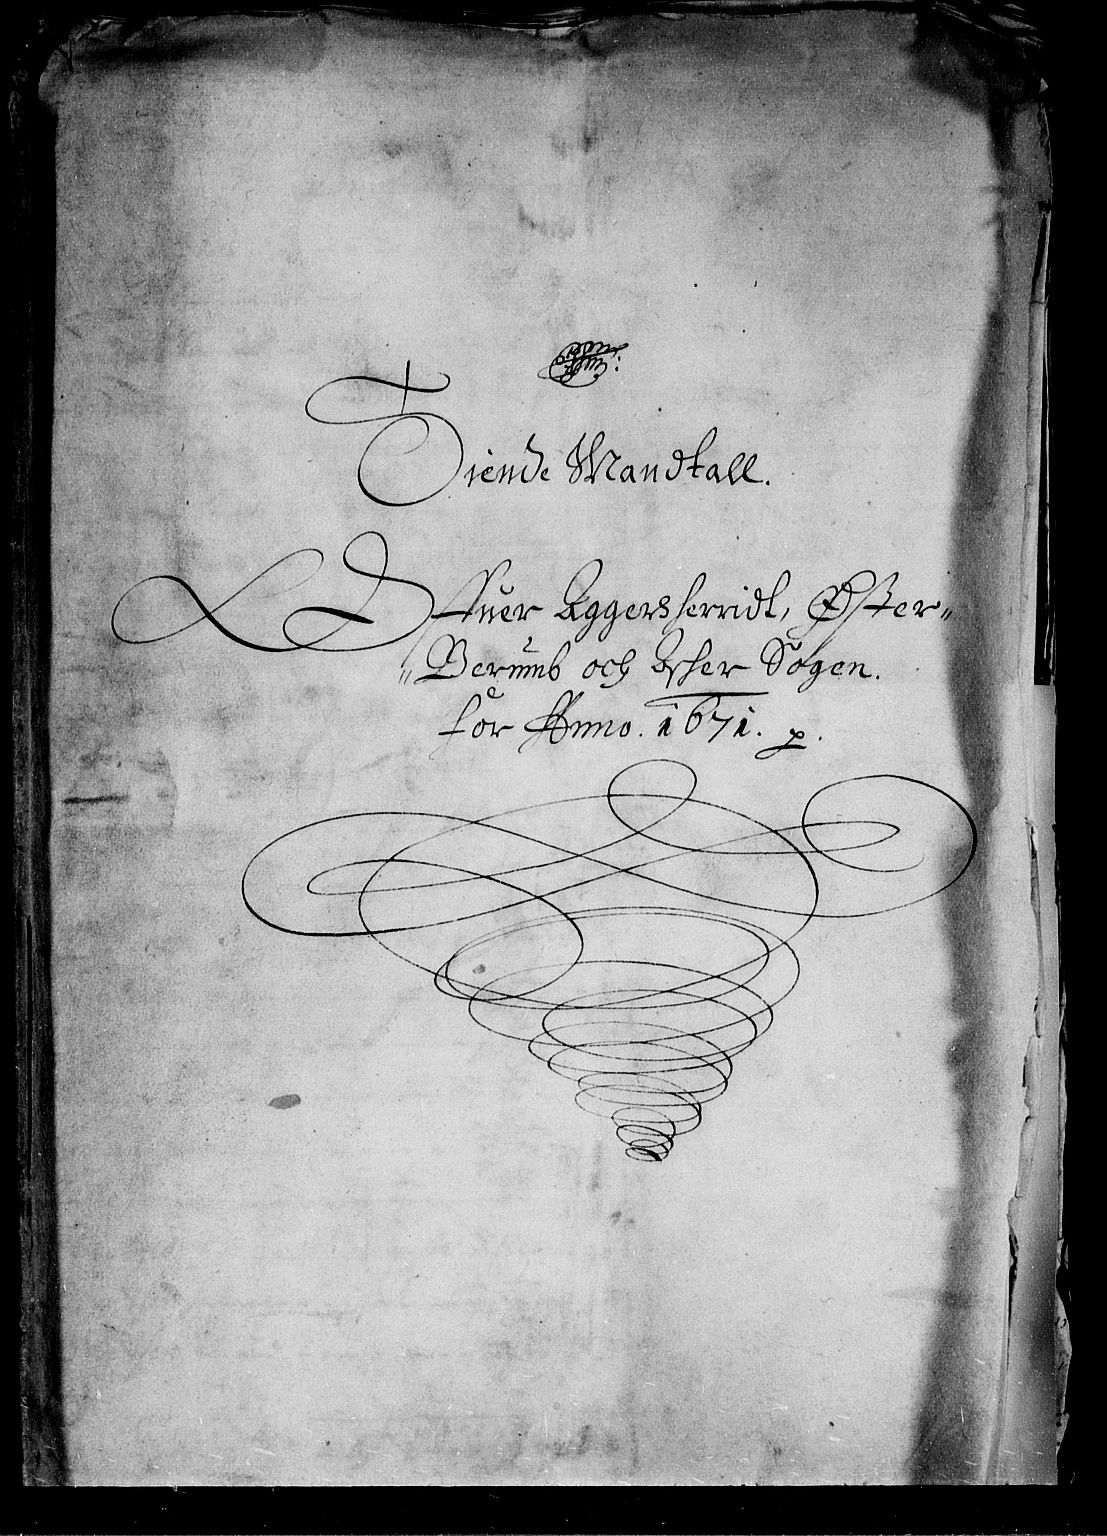 Tiende Mandtall.
Offuer Aggersherridt, Øster-
-Berumb och Asker Sogen.
for Anno. 1671. p.